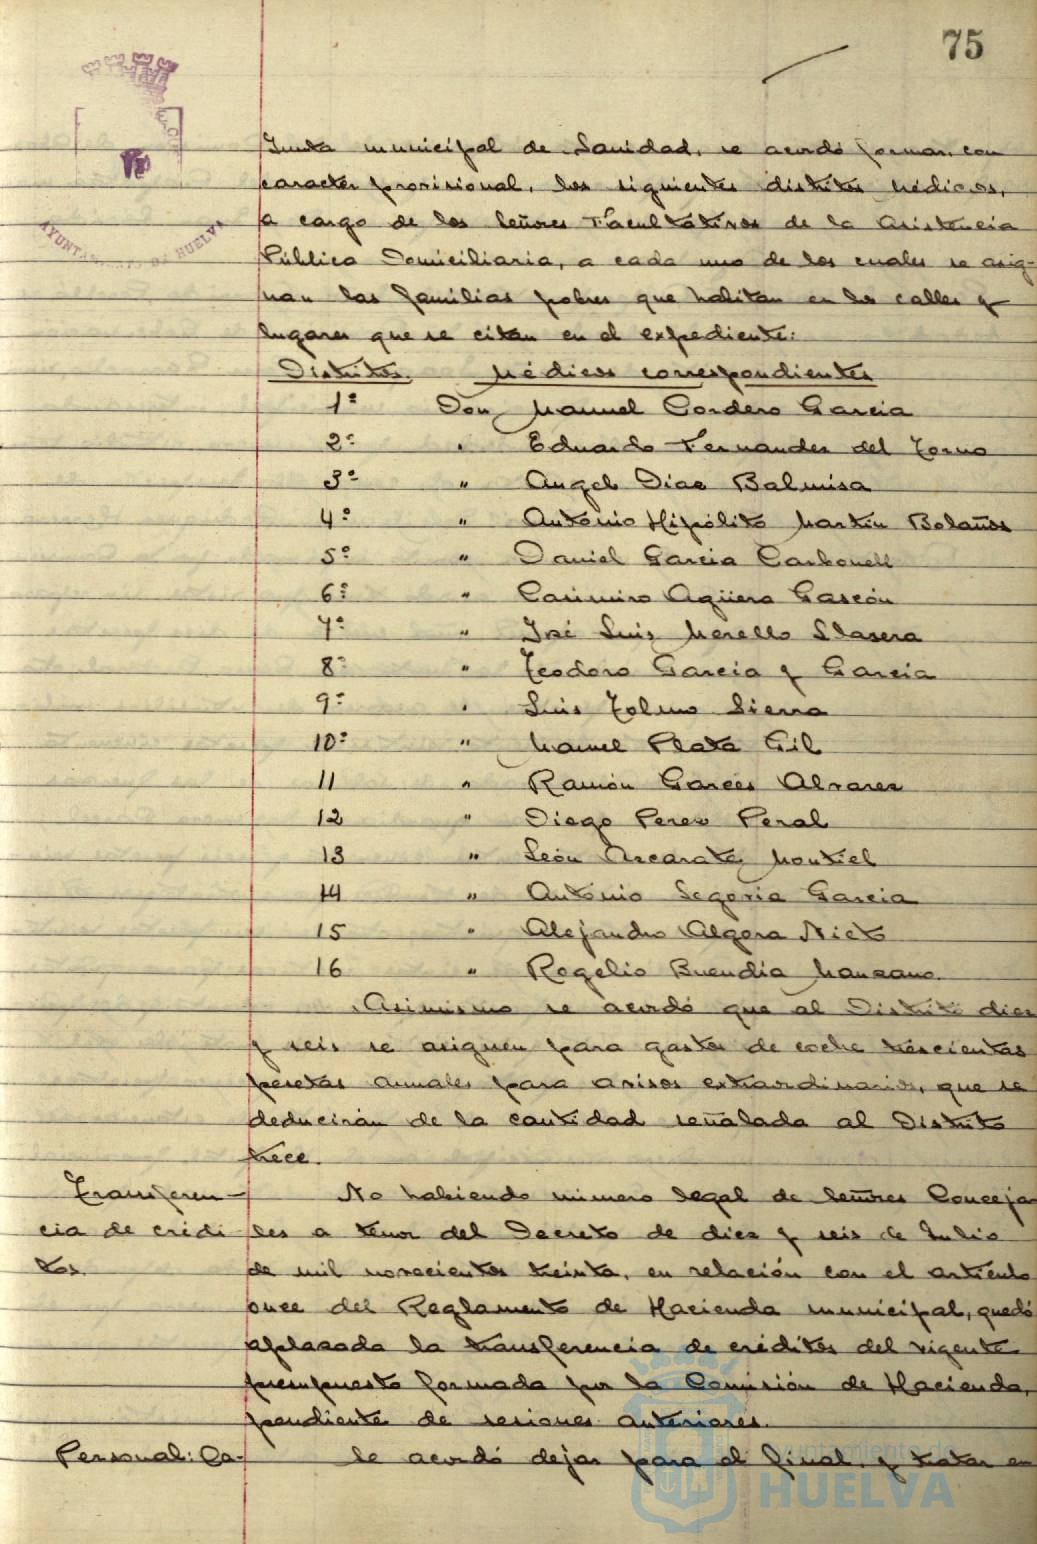 75
AYUNTAMIENTO DE HUELVA
Junta municipal de Sanidad, se acordó formar, con
caracter provisional, los siguientes distritos médicos,
a cargo de los Señores Facultativos de la Asistencia
Pública Domiciliaria, a cada uno de los cuales se asig-
nan las familias pobres que habitan en las calles y
lugares que se citan en el expediente:
Distritos. Médicos correspondientes
1º Don Manuel Cordero Garcia
2º " Eduardo Fernandez del Torno
3º " Angel Diaz Balmisa
4º " Antonio Hipólito Martín Bolaños
5º " Daniel Garcia Carbonell
6º " Casimiro Agüera Gascón
7º " José Luis Merello Llasera
8º " Teodoro Garcia y Garcia
9º " Luis Tolmo Sierra
10º " Manuel Plata Gil
11 " Ramón Garcés Alvarez
12 " Diego Perez Peral
13 " León Azcarate Montiel
14 " Antonio Segovia Garcia
15 " Alejandro Algora Nieto
16 " Rogelio Buendía Manzano.
Asimismo se acordó que al Distrito diez
y seis se asignen para gastos de coche trescientas
pesetas anuales para avisos extraordinarios, que se
deducirán de la cantidad señalada al Distrito
trece.
Transferen-
cia de crédi-
tos.
No habiendo número legal de Señores Conceja-
les a tenor del Decreto de diez y seis de Julio
de mil novecientos treinta, en relación con el artículo
once del Reglamento de Hacienda municipal, quedó
aplazada la transferencia de créditos del vigente
presupuesto formada por la Comisión de Hacienda,
pendiente de sesiones anteriores.
Personal: Ca-
Se acordó dejar para el final, y tratar en
Ayuntamiento de
HUELVA